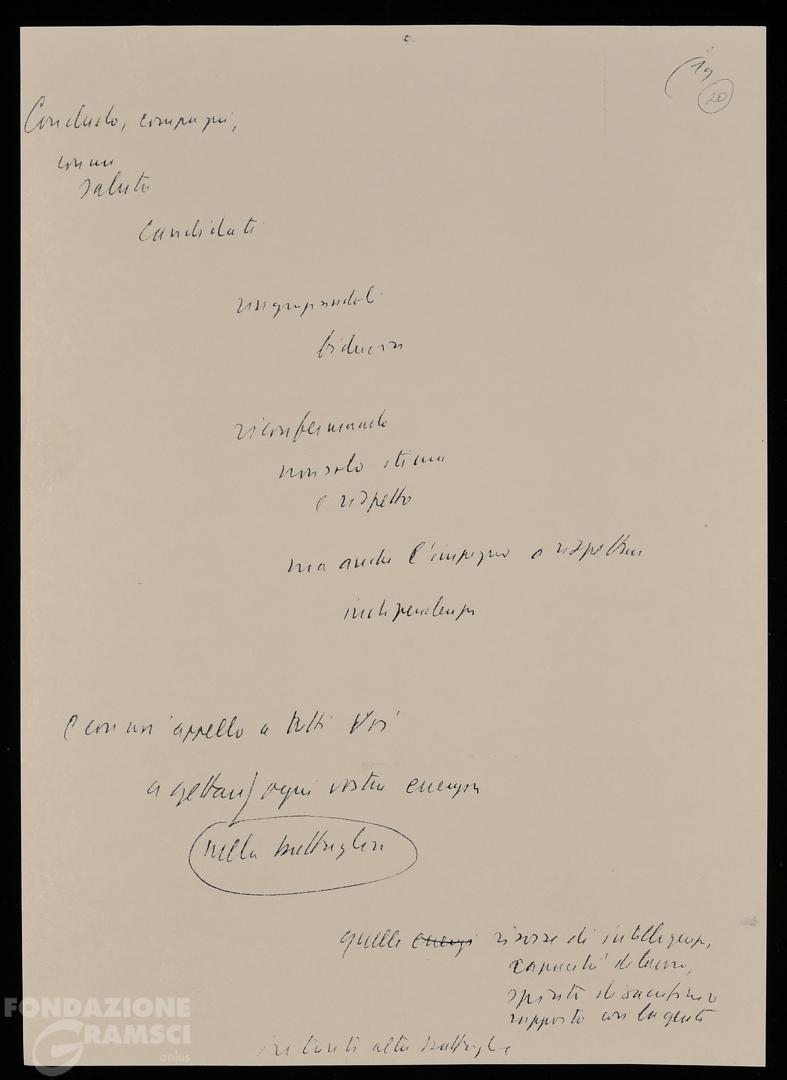 19
20
Concludo, compagni,
con un
saluto
candidati
ringraziandoli
fiducia
riconfermando
non solo stima
e rispetto
ma anche l'impegno a rispettare
indipendenza
e con un appello a tutti Voi
a gettare ogni vostra energia
nella battaglia
quelle energi risorse di intelligenza,
capacità di lavoro,
spirito di sacrificio
rapporto con la gente
in tante altre battaglie
FONDAZIONE
GRAMSCI
onlus